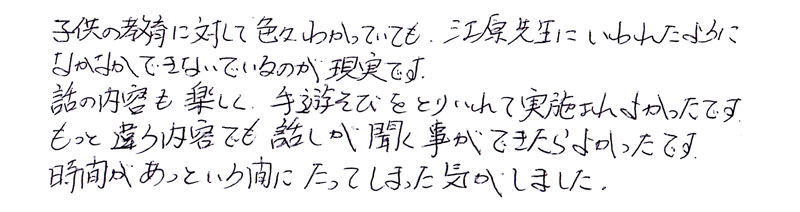 子供の教育に対して色々わかっていても、江原先生にいわれたように
なかなかできないでいるのが現実です。
話の内容も楽しく、手遊そびをとりいれて実施されよかったです
もっと違う内容でも話しが聞く事ができたらよかったです。
時間があっという間にたってしまった気がしました。